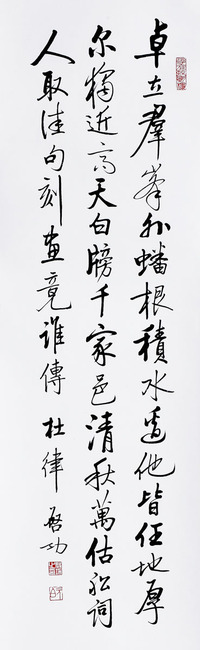 卓立羣峯外蟠根積水邊他皆任地厚
尔獨近高天白牓千家邑清秋萬估舩詞
人取佳句刻畫竟誰傳 杜律 啓功